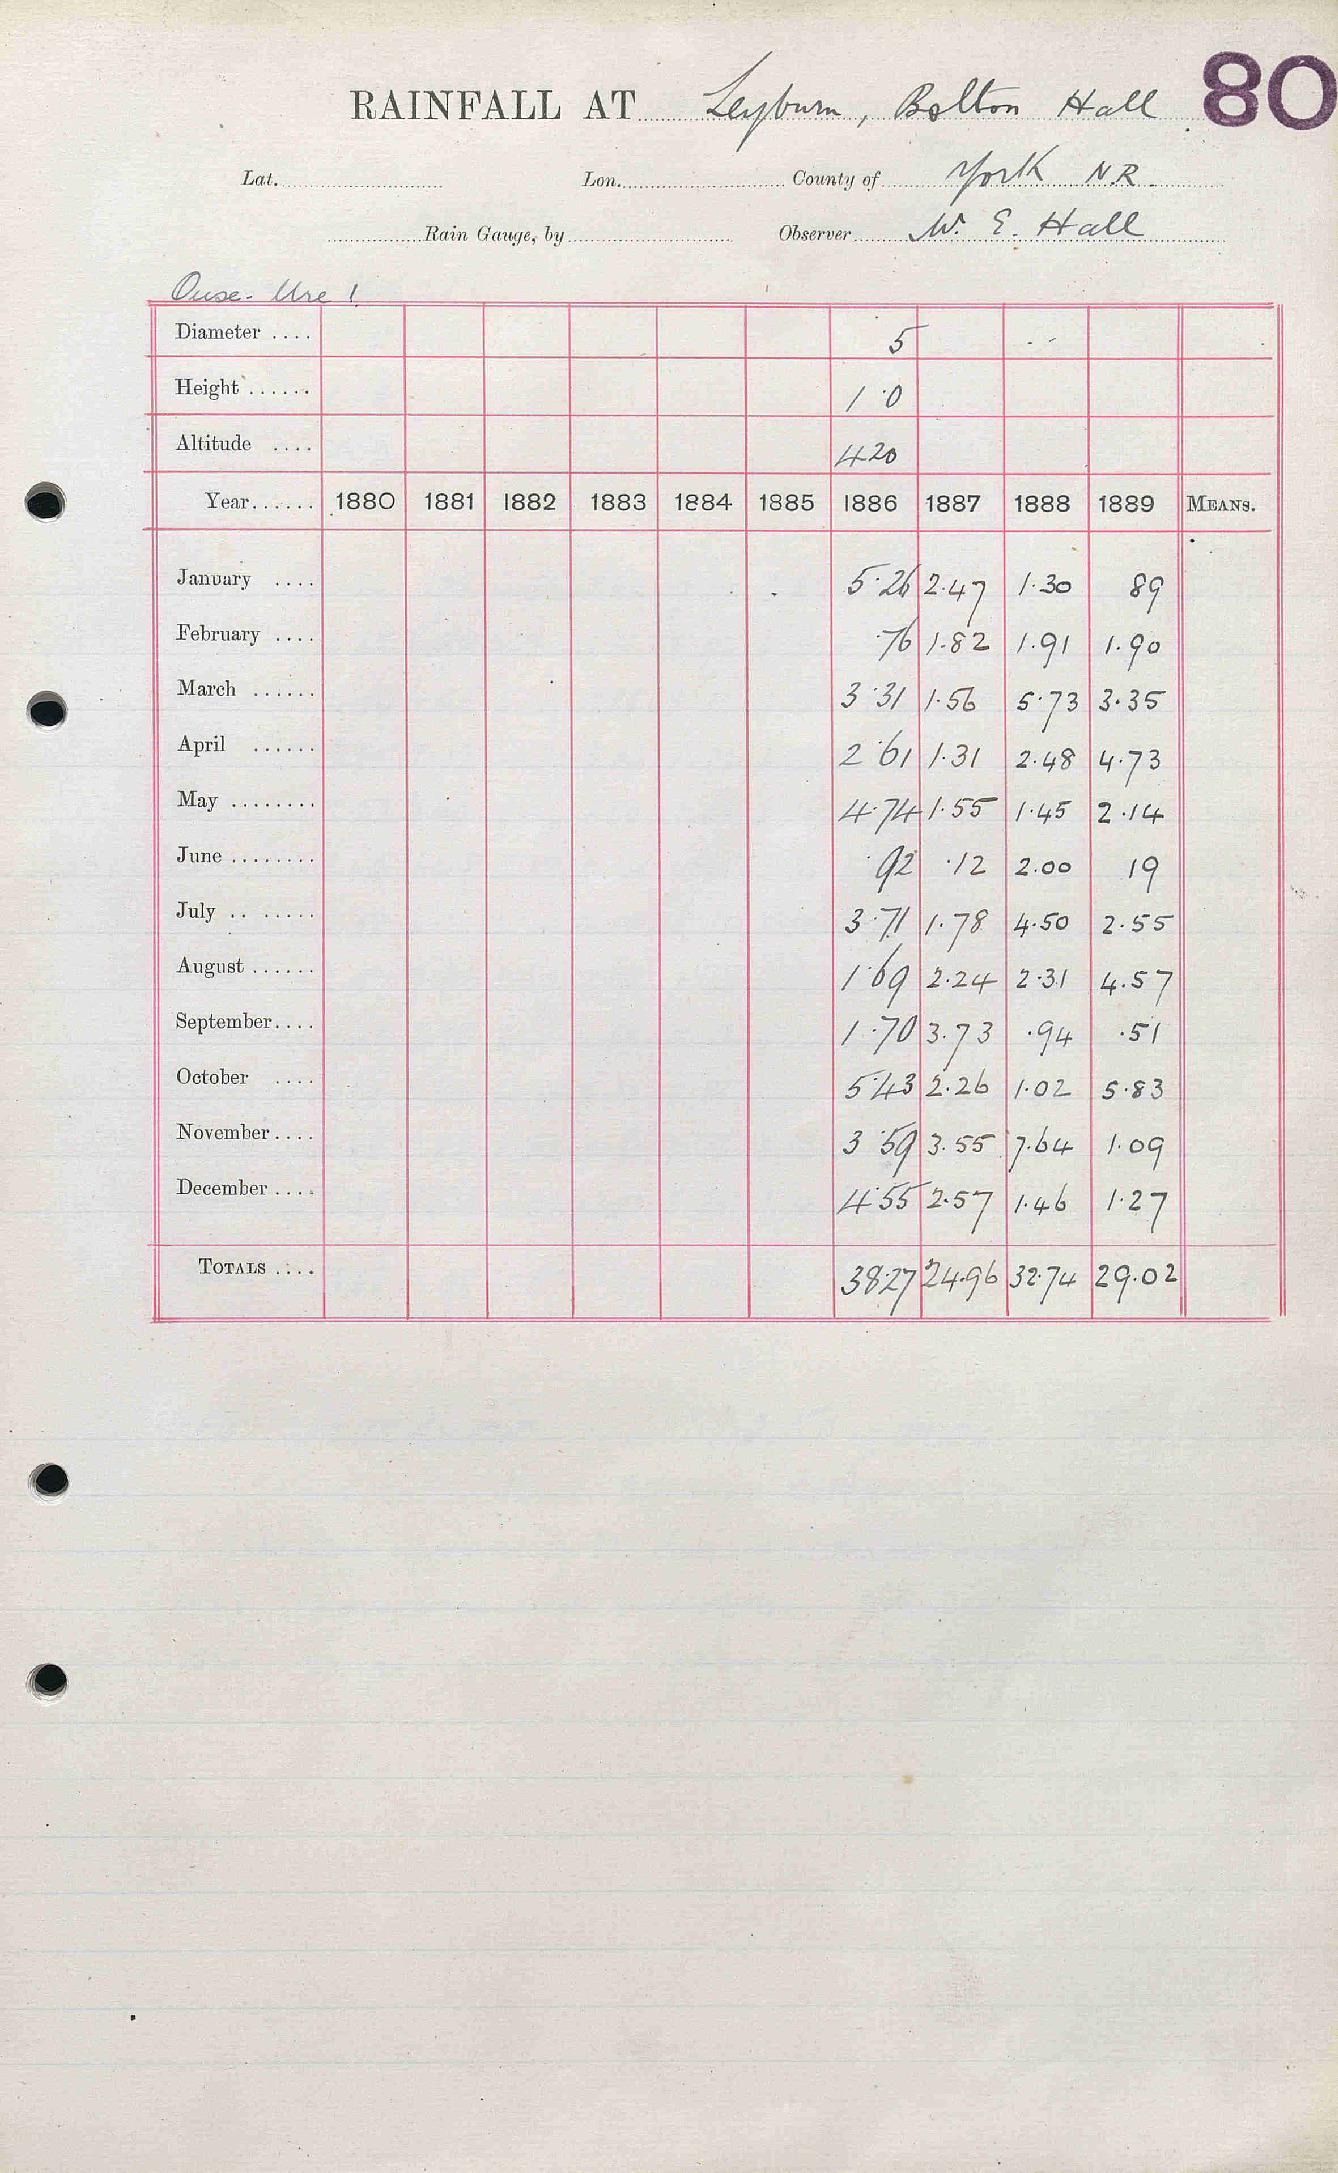 80
RAINFALL AT Leyburn, Bolton Hall
Lat. Lon. County of York N.R.
Rain Gauge, by Observer W. E. Hall
Ouse - Ure 1
Diameter .... 5
Height ...... 1·0
Altitude .... 420
Year...... 1880 1881 1882 1883 1884 1885 1886 1887 1888 1889 MEANS.
January .... 5·26 2.47 1.30 89
February .... ·76 1.82 1.91 1.90
March ...... 3·31 1.56 5.73 3.35
April ...... 2·61 1.31 2.48 4.73
May ........ 4·74 1.55 1.45 2.14
June ........ ·92 ·12 2.00 19
July .. ..... 3·71 1.78 4.50 2.55
August ...... 1·69 2.24 2.31 4.57
September.... 1·70 3.73 ·94 ·51
October .... 5·43 2.26 1.02 5.83
November.... 3·59 3.55 7.64 1.09
December .... 4·55 2.57 1.46 1.27
TOTALS .... 38·27 24.96 32.74 29.02